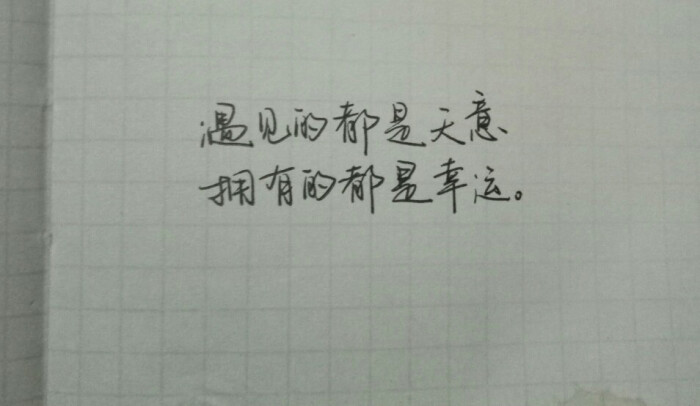 遇见的都是天意、
拥有的都是幸运。